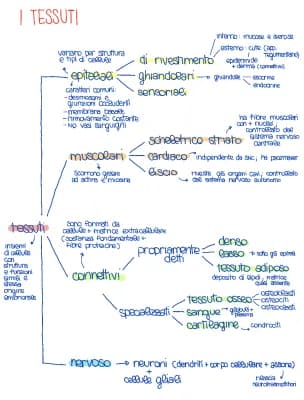 I TESSUTI
variano per struttura
e tipi di cellule
epiteliali
caratteri comuni:
- desmosomi e
giunzioni occludenti
- membrana basale
- rinnovamento costante
- no vasi sanguigni
di rivestimento
interno: mucose e sierose
esterno: cute (app.
tegumentario)
epidermide
+ derma (connettivo)
ghiandolari
ghiandole
esocrine
endocrine
sensoriali
muscolari
scorrono grazie
ad actina e miosina
scheletrico striato
ha fibre muscolari
con + nuclei,
controllato dal
sistema nervoso
centrale
cardiaco
indipendente da snc, ha pacemaker
liscio
riveste gli organi cavi, controllato
dal sistema nervoso autonomo
tessuti
insiemi
di cellule
con
struttura
e funzioni
simili e
stessa
origine
embrionale
sono formati da
cellule + matrice extracellulare
(sostanza fondamentale +
fibre proteiche)
connettivi
propriamente
detti
denso
lasso
sotto gli epiteli
tessuto adiposo
deposito di lipidi, matrice
quasi assente
specializzati
tessuto osseo
osteoblasti
osteociti
osteoclasti
sangue
plasma
cartilagine
condrociti
nervoso
neuroni (dendriti + corpo cellulare + assone)
+
cellule gliali
rilascia
neurotrasmettitori